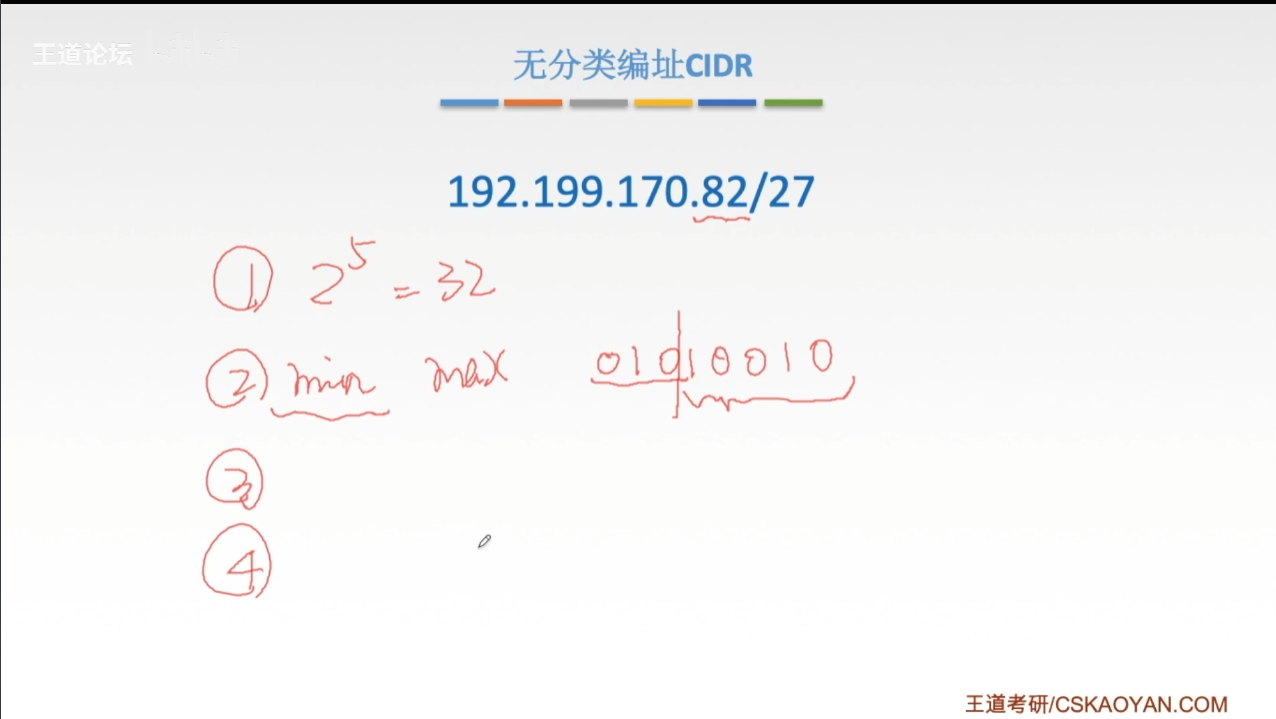 王道论坛
无分类编址CIDR
192.199.170.82/27
① 2⁵ = 32
② min max 01010010
③
④
王道考研/CSKAOYAN.COM